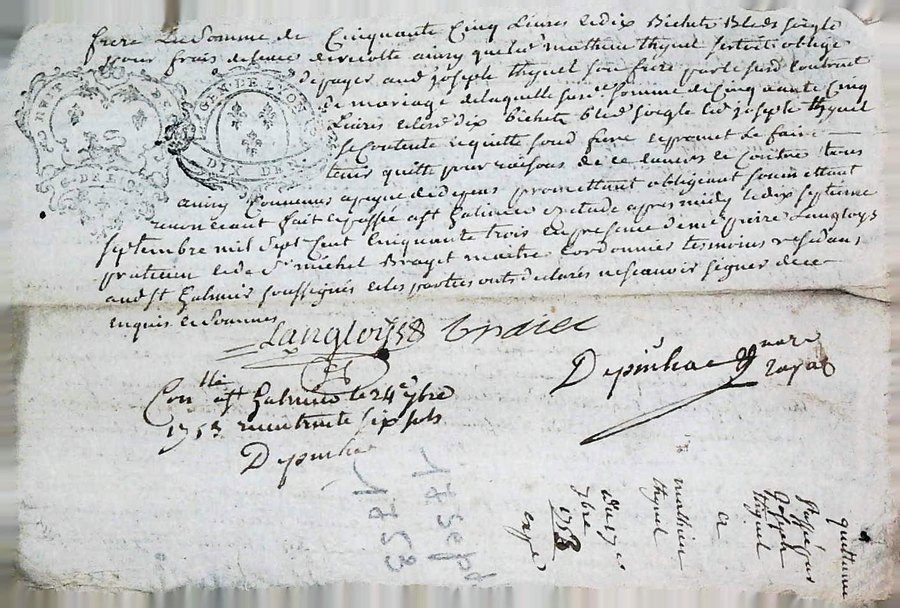 frere La Somme de Cinquante Cinq Livres et dix Bichets Bleds seigle
pour frais de que led mathieu thyuel sestoit oblige
de payer aud joseph thyuel son frere par le susd Contract
de mariage de laquelle susd somme de Cinquante Cinq
Livres et lesd dix bichets bled seigle led joseph thyuel
se Contente et quitte sond frere et promet Le faire
tenir quitte pour raisons de ce envers et Contre tous
ainsy Convenus a peyne de depens promettant obligeant soumettant
renonceant fait et passé a st Galmier Estude apres midy le dix septieme
septembre mil sept Cent Cinquante trois En presence de me pierre Langloys
praticien et de sr michel Brayet maitre Cordonnier tesmoins residans
aud st Galmier soussignés et les parties ont declarés ne scavoir signer de ce
enquis et sommes
Langloys
Depinhac nore
royal
Conlle a st Galmier le 24e 7bre
1753 recu trente six sols
Depinhac
17 sept
1753
quittance
joseph
thyuel
a
mathieu
thyuel
du 17e
7bre
1753